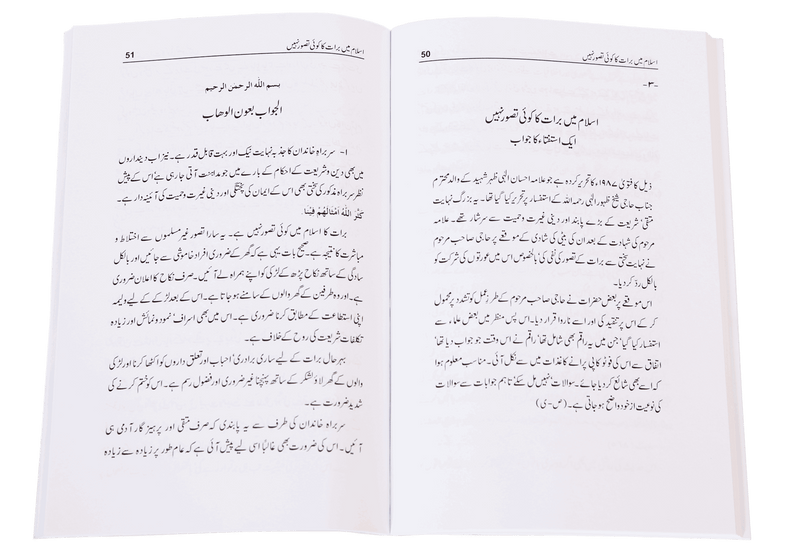 50
اسلام میں برات کا کوئی تصور نہیں
-۳-
اسلام میں برات کا کوئی تصور نہیں
ایک استفتاء کا جواب
ذیل کا فتویٰ ۱۹۸۷ء کا تحریر کردہ ہے جو علامہ احسان الٰہی ظہیر شہید کے والد محترم
جناب حاجی شیخ ظہور الٰہی رحمہ اللہ کے استفسار پر تحریر کیا گیا تھا۔ یہ بزرگ نہایت
متقی' شریعت کے بڑے پابند اور دینی غیرت و حمیت سے سرشار تھے۔ علامہ
مرحوم کی شہادت کے بعد ان کی بیٹی کی شادی کے موقعے پر حاجی صاحب مرحوم
نے نہایت سختی سے برات کے تصور کی نفی کی' بالخصوص اس میں عورتوں کی شرکت کو
بالکل رد کر دیا۔
اس موقعے پر بعض حضرات نے حاجی صاحب مرحوم کے طرز عمل کو تشدد پر محمول
کر کے اس پر تنقید کی اور اسے ناروا قرار دیا۔ اس پس منظر میں بعض علماء سے
استفسار کیا گیا' جن میں یہ راقم بھی شامل تھا' راقم نے اس وقت جو جواب دیا تھا'
اتفاق سے اس کی فوٹو کاپی پرانے کاغذات میں سے نکل آئی۔ مناسب معلوم ہوا
کہ اسے بھی شائع کر دیا جائے۔ سوالات نہیں مل سکے' تاہم جوابات سے سوالات
کی نوعیت از خود واضح ہو جاتی ہے۔ (ص-ی)
51
اسلام میں برات کا کوئی تصور نہیں
بسم اللہ الرحمن الرحیم
الجواب بعون الوھاب
۱- سربراہ خاندان کا جذبہ نہایت نیک اور بہت قابل قدر ہے۔ نیز اب دینداروں
میں بھی دین و شریعت کے احکام کے بارے میں جو مداہنت آتی جا رہی ہے' اس کے پیش
نظر سربراہ مذکور کی سختی بھی اس کے ایمان کی پختگی اور دینی غیرت و حمیت کی آئینہ دار ہے۔
كَثَّرَ اللهُ اَمْثَالَهُمْ فِيْنَا۔
برات کا اسلام میں کوئی تصور نہیں ہے۔ یہ سارا تصور غیر مسلموں سے اختلاط و
مباشرت کا نتیجہ ہے۔ صحیح بات یہی ہے کہ گھر کے ضروری افراد خاموشی سے جائیں اور بالکل
سادگی کے ساتھ نکاح پڑھ کے لڑکی کو اپنے ہمراہ لے آئیں۔ صرف نکاح کا اعلان ضروری
ہے۔ اور وہ طرفین کے گھر والوں کے سامنے ہو جاتا ہے۔ اس کے بعد لڑکے کے لیے ولیمہ
اپنی استطاعت کے مطابق کرنا ضروری ہے۔ اس میں بھی اسراف' نمود و نمائش اور زیادہ
تکلفات شریعت کی روح کے خلاف ہے۔
بہرحال برات کے لیے ساری برادری' احباب اور تعلق داروں کو اکٹھا کرنا اور لڑکی
والوں کے گھر لاؤ لشکر کے ساتھ پہنچنا غیر ضروری اور فضول رسم ہے۔ اس کو ختم کرنے کی
شدید ضرورت ہے۔
سربراہ خاندان کی طرف سے یہ پابندی کہ صرف متقی اور پرہیز گار آدمی ہی
آئیں۔ اس کی ضرورت بھی غالباً اسی لیے پیش آئی ہے کہ عام طور پر زیادہ سے زیادہ